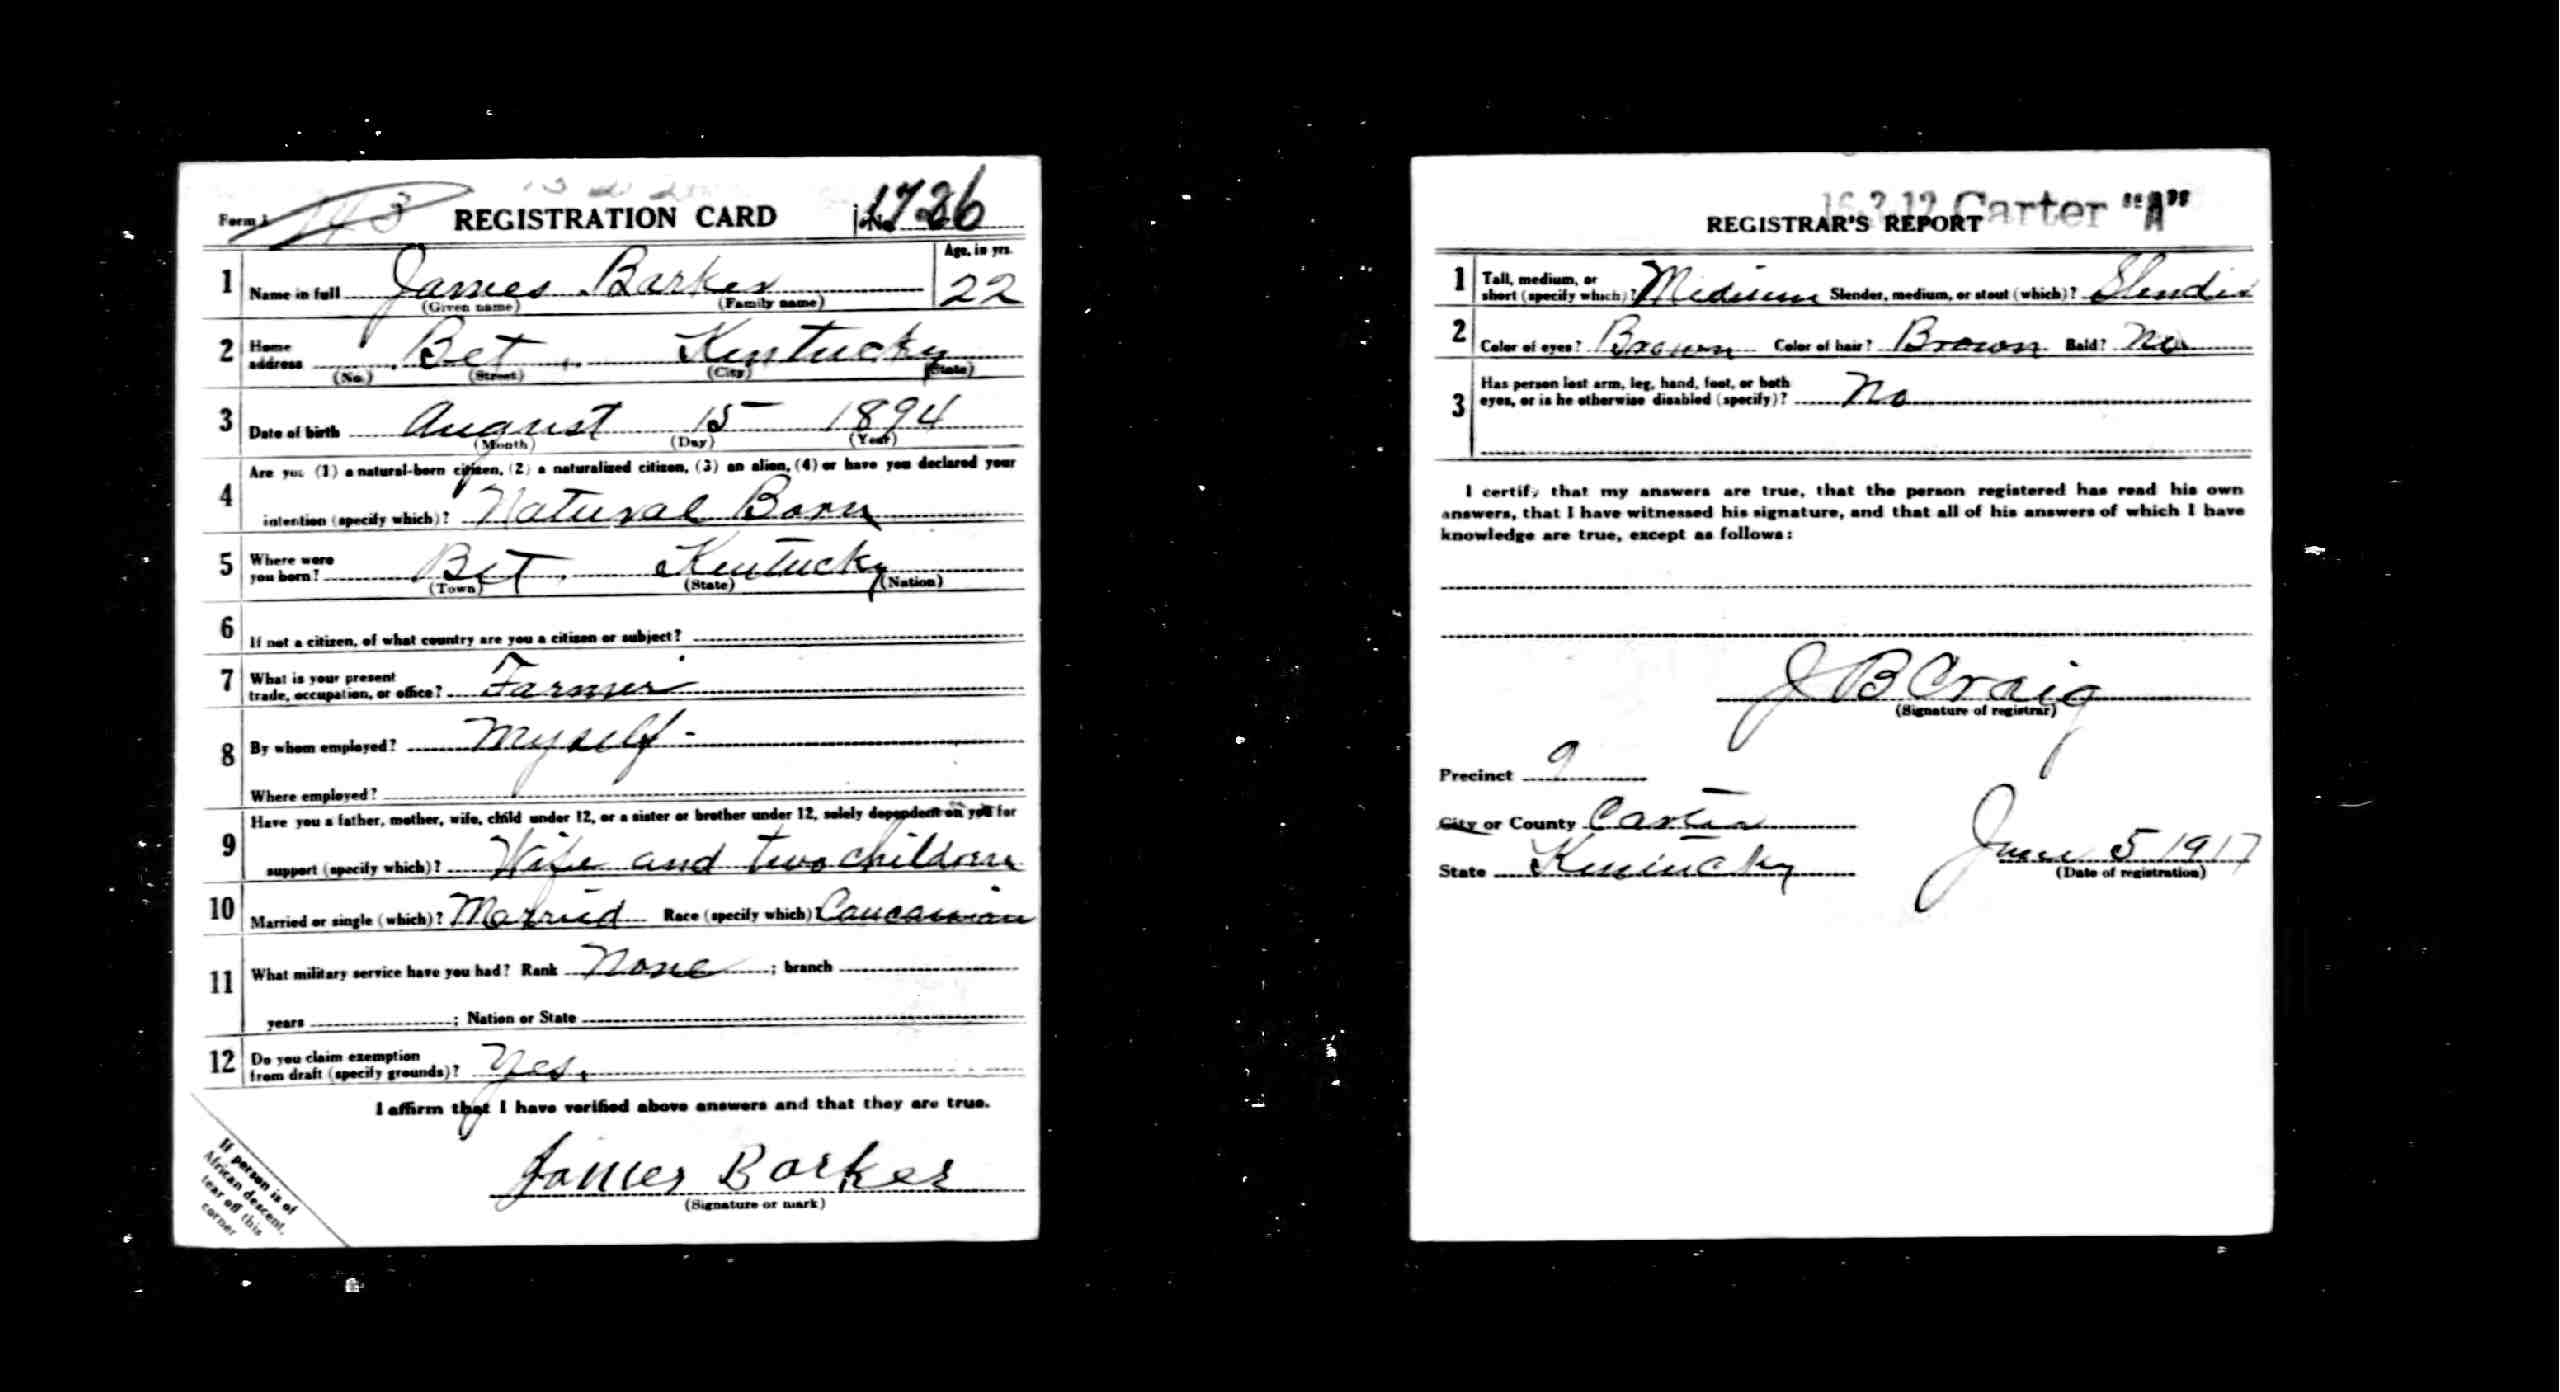 Form 1 143 REGISTRATION CARD No. 1726
1 Name in full James Barker Age, in yrs. 22
(Given name) (Family name)
2 Home address Bet, Kentucky
(No.) (Street) (City) (State)
3 Date of birth August 15 1894
(Month) (Day) (Year)
Are you (1) a natural-born citizen, (2) a naturalized citizen, (3) an alien, (4) or have you declared your
4 intention (specify which)? Natural Born
5 Where were you born? Bet, Kentucky
(Town) (State) (Nation)
6 If not a citizen, of what country are you a citizen or subject?
7 What is your present trade, occupation, or office? Farmer
8 By whom employed? Myself -
Where employed?
Have you a father, mother, wife, child under 12, or a sister or brother under 12, solely dependent on you for
9 support (specify which)? Wife and two children
10 Married or single (which)? Married Race (specify which)? Caucasian
11 What military service have you had? Rank None ; branch
years ; Nation or State
12 Do you claim exemption from draft (specify grounds)? Yes.
I affirm that I have verified above answers and that they are true.
James Barker
(Signature or mark)
If person is of
African descent,
tear off this
corner
Carter "A"
REGISTRAR'S REPORT
1 Tall, medium, or short (specify which)? Medium Slender, medium, or stout (which)? Slender
2 Color of eyes? Brown Color of hair? Brown Bald? No
3 Has person lost arm, leg, hand, foot, or both eyes, or is he otherwise disabled (specify)? No
I certify that my answers are true, that the person registered has read his own
answers, that I have witnessed his signature, and that all of his answers of which I have
knowledge are true, except as follows:
J B Craig
(Signature of registrar)
Precinct 9
City or County Carter
State Kentucky June 5 1917
(Date of registration)